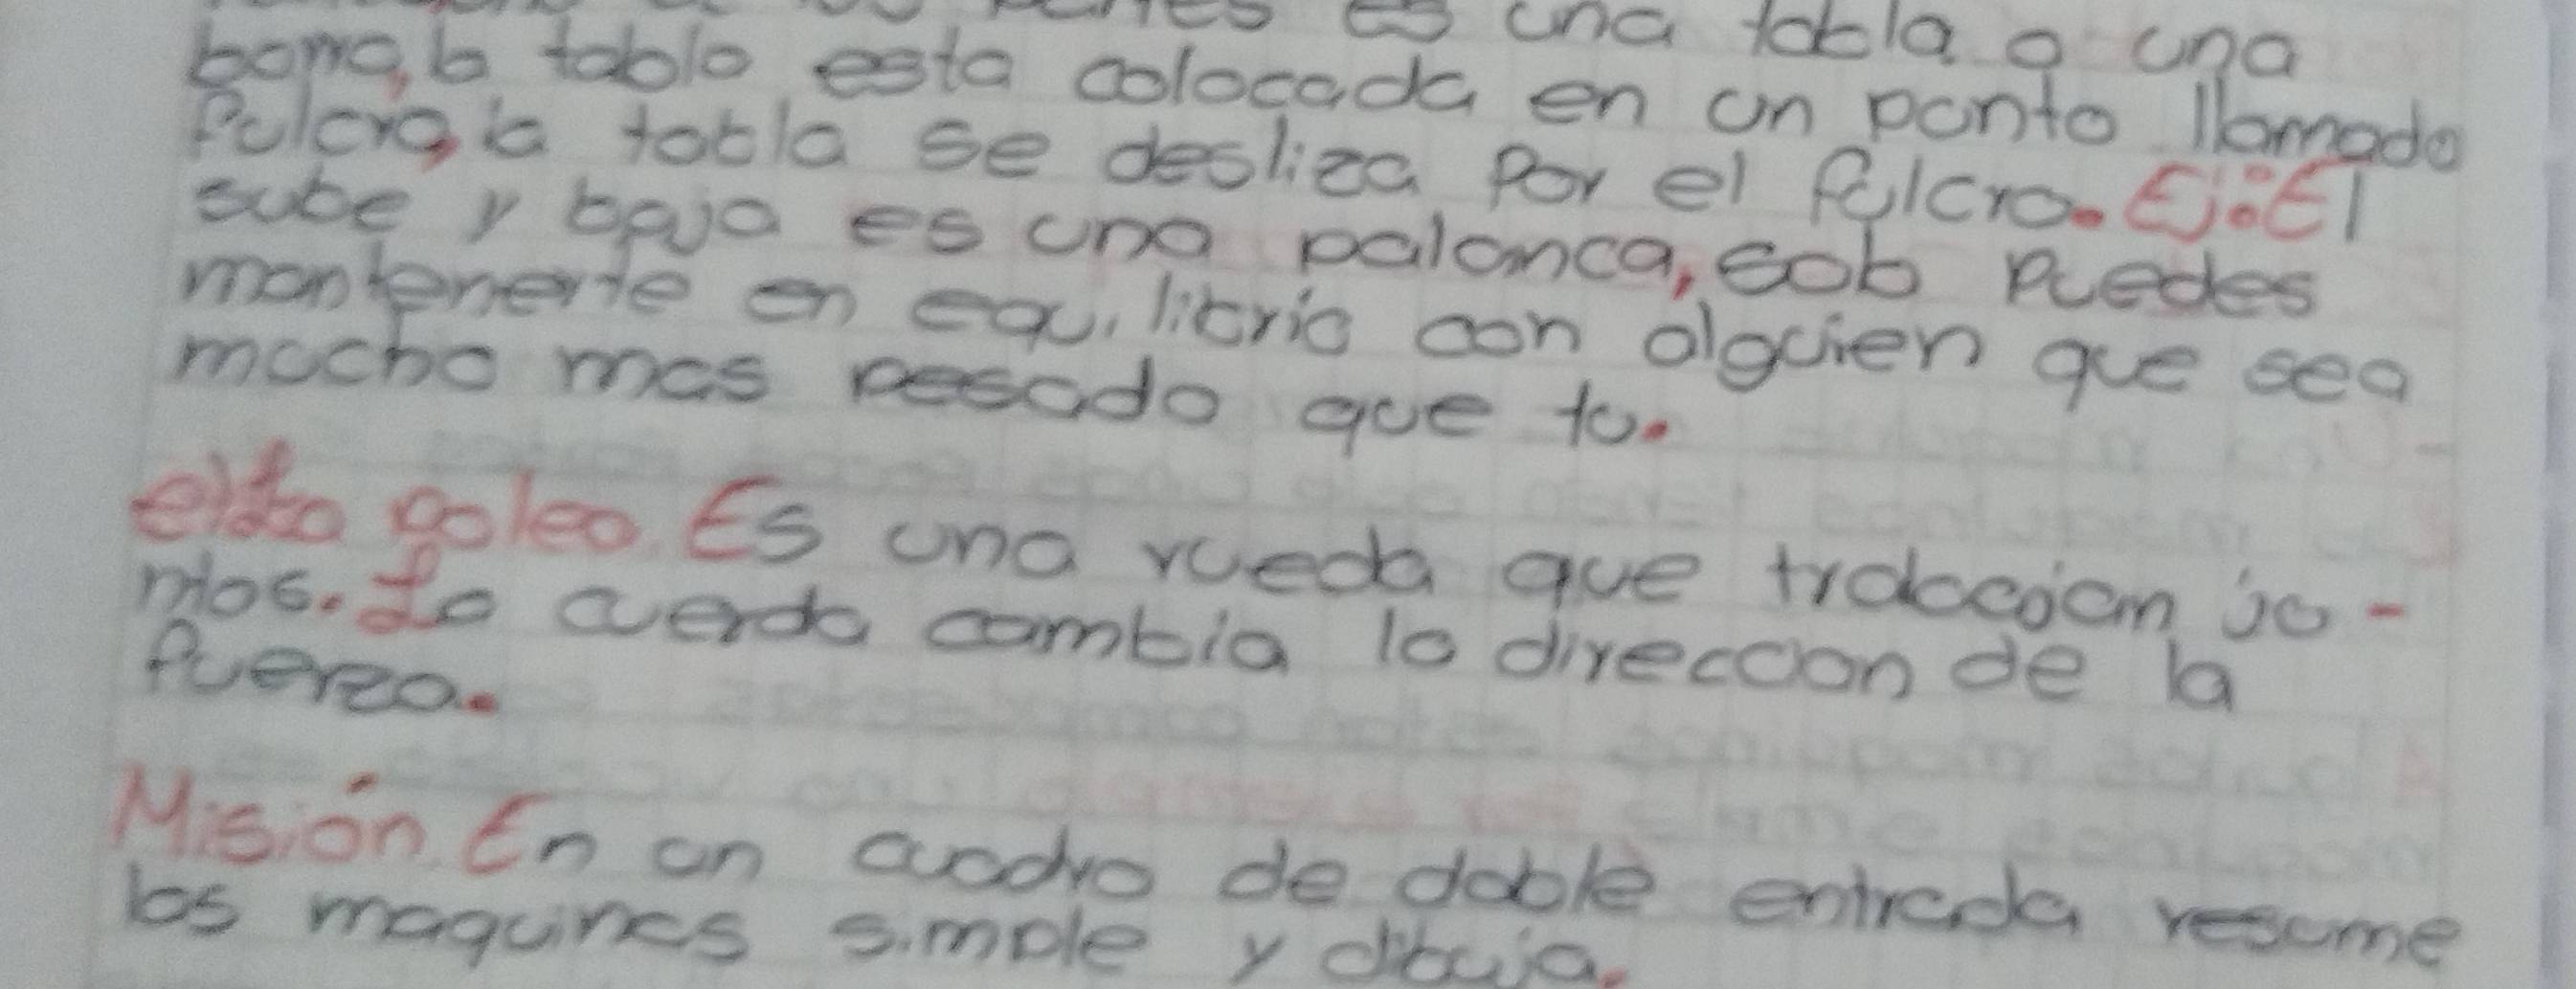 es una tabla o una
barra, la tabla esta colocada en un punto llamado
fulcro, la tabla se desliza por el fulcro. Ej: El
sube y baja es una palanca, solo puedes
mantenerte en equilibrio con alguien que sea
mucho mas pesado que tu.
polea. Es una rueda que trabajan ju-
ntos. La cuerda cambia la direccion de la
fuerza.
Misión. En un cuadro de doble entrada resume
las maquinas simple y dibuja.